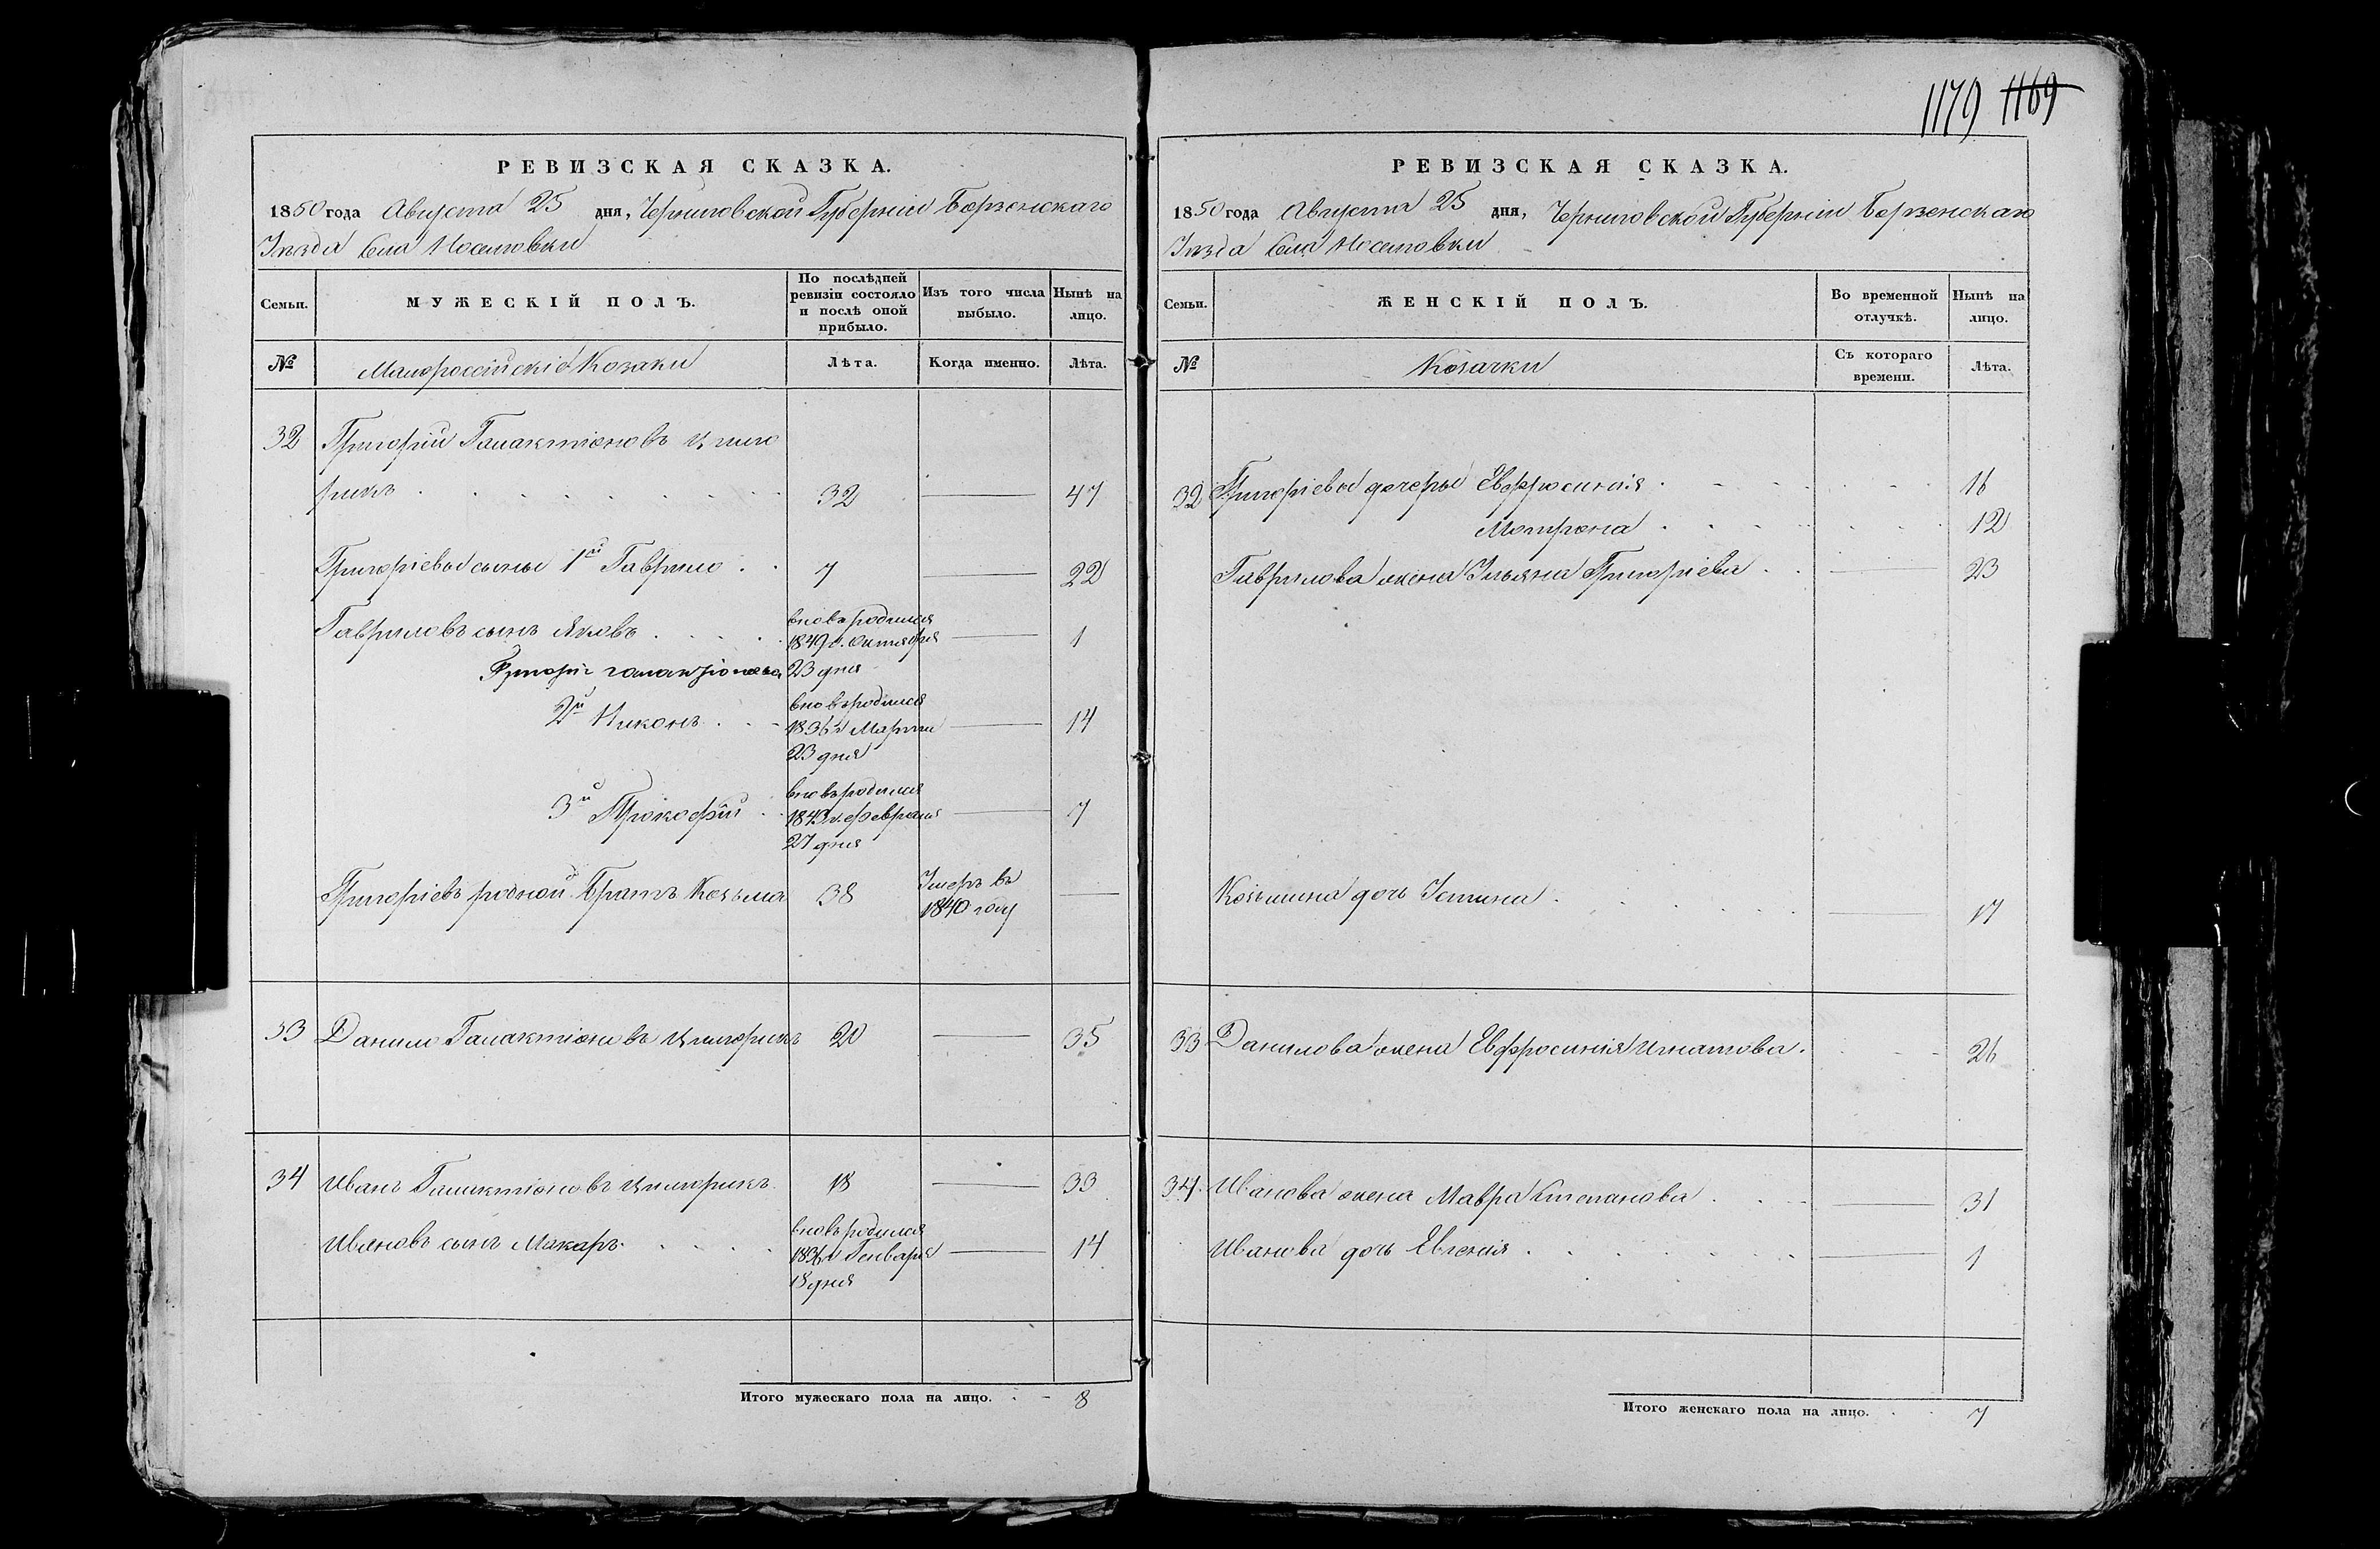 1179 1169
РЕВИЗСКАЯ СКАЗКА.
1850 года Августа 25 дня, Черниговской Губерніи Борзенскаго
Уезда Села Носиловки
Семьи. МУЖЕСКІЙ ПОЛЪ. По послѣдней ревизіи состояло и послѣ оной прибыло. Изъ того числа выбыло. Нынѣ на лицо.
№ Малороссійскіе Козаки Лѣта. Когда именно. Лѣта.
32 Григорій Галактіоновъ
рикъ 32 — 47
Григоріевы сыны 1й Гаврило 7 — 22
Гавриловъ сынъ Яковъ вновь родился 1849 г. Октября 23 дня — 1
Григорія Галактіонова
2й Никонъ вновь родился 1836 г. Марта 23 дня — 14
3й Прокофій вновь родился 1843 г. февраля 27 дня — 7
Григоріевъ родной братъ Козьма 38 Умеръ въ 1840 году —
33 Данило Галактіоновъ 20 — 35
34 Иванъ Галактіоновъ 18 — 33
Ивановъ сынъ Макаръ вновь родился 1836 г. Генваря 18 дня — 14
Итого мужескаго пола на лицо. 8
РЕВИЗСКАЯ СКАЗКА.
1850 года Августа 25 дня, Черниговской Губерніи Борзенскаго
Уезда Села Носиловки
Семьи. ЖЕНСКІЙ ПОЛЪ. Во временной отлучкѣ. Нынѣ на лицо.
№ Козачки Съ котораго времени. Лѣта.
32 Григоріевы дочеры Евфросинія 16
Мотрона 12
Гаврилова жена Ульяна Григоріева — 23
Козьмина дочь Устина — 17
33 Данилова жена Евфросинія Игнатова 26
34. Иванова жена Мавра Степанова — 31
Иванова дочь Евгенія — 1
Итого женскаго пола на лицо. 7